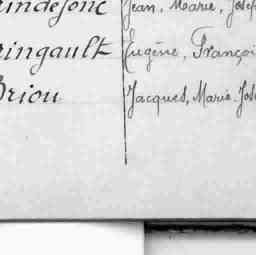 indejonc Jean, Marie, Josep
ringault Eugène, Françoi
Briou Jacques, Marie, Jos